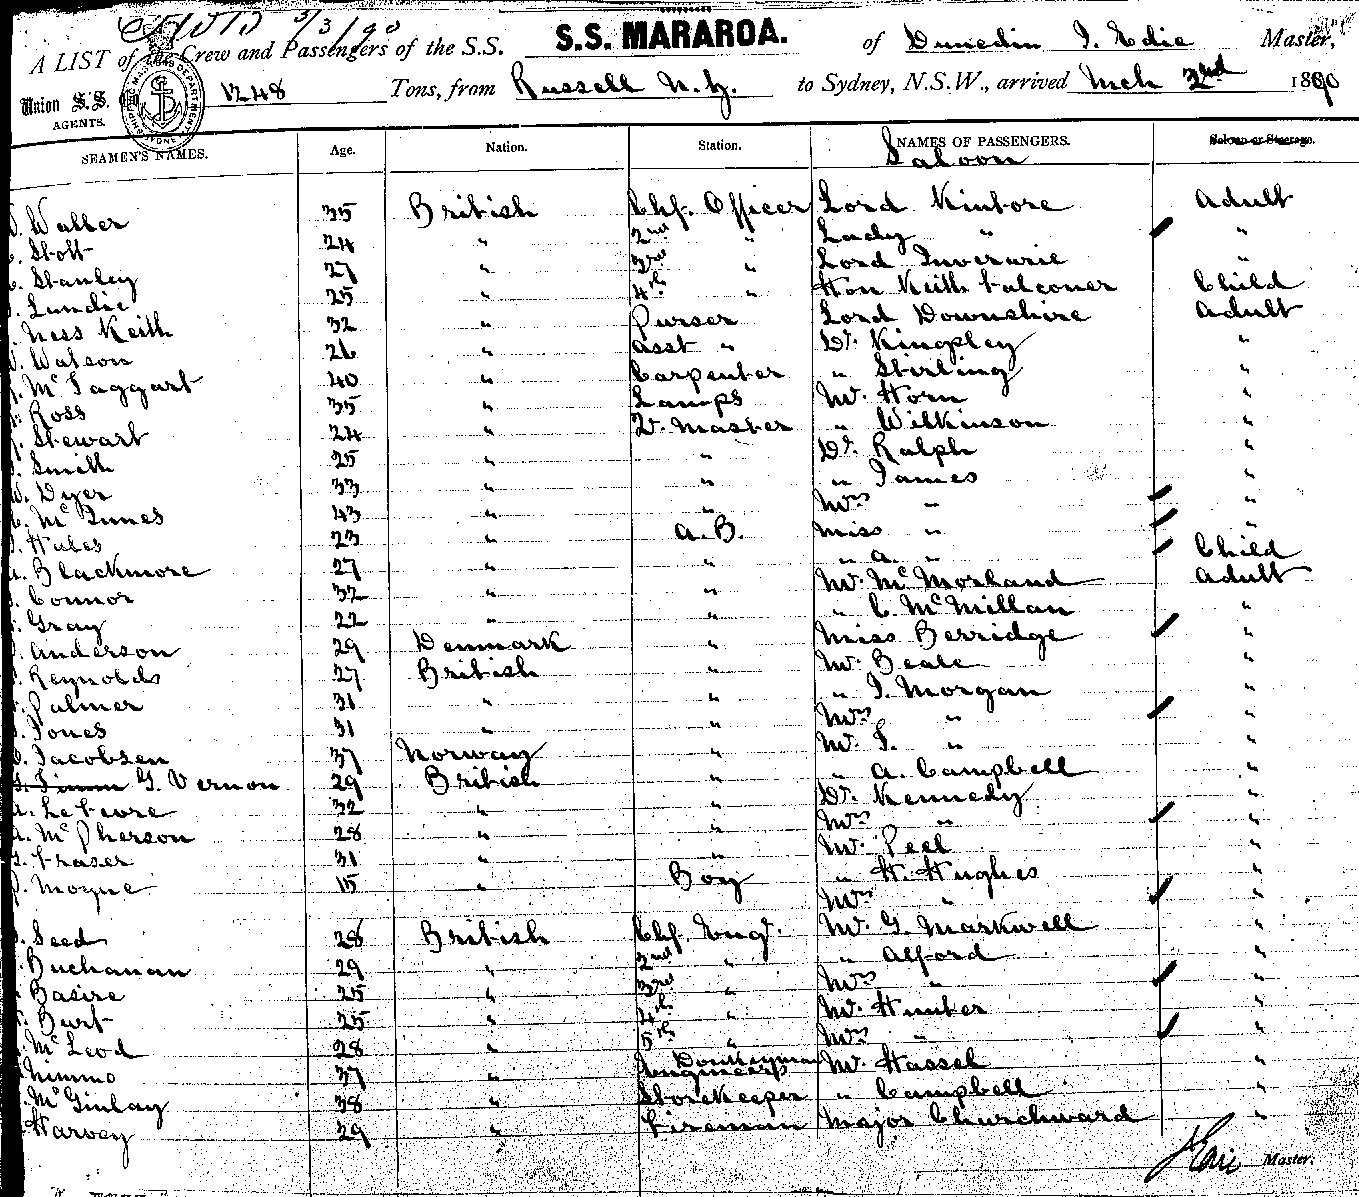 5/3/90
A LIST of the Crew and Passengers of the S.S. S.S. MARAROA. of Dunedin J. Edie Master,
Union S.S. Co 1248 Tons, from Russell N.Z. to Sydney, N.S.W., arrived Mch 2nd 1890
AGENTS.
SEAMEN'S NAMES. Age. Nation. Station. NAMES OF PASSENGERS. Saloon or Steerage.
Saloon
Waller 35 British Chf. Officer Lord Kintore Adult
Stott 24 " 2nd " Lady " "
Stanley 27 " 3rd " Lord Inverurie "
Lundie 25 " 4th " Hon Keith Falconer Child
Ness Keith 32 " Purser Lord Downshire Adult
Watson 26 " Asst " Dr. Kingsley "
McTaggart 40 " Carpenter " Stirling "
Ross 35 " Lamps Mr. Horn "
Stewart 24 " Q. Master " Wilkinson "
Smith 25 " " Dr. Ralph "
W. Dyer 33 " " " James "
McInnes 43 " " Mrs " "
Hales 23 " A.B. Miss " "
Blackmore 27 " " " A. " Child
Connor 32 " " Mr. McMorland Adult
Gray 22 " " " C. McMillan "
Anderson 29 Denmark " Miss Berridge "
Reynolds 27 British " Mr. Beale "
Palmer 31 " " " J. Morgan "
Jones 31 " " Mrs " "
Jacobsen 37 Norway " Mr. J. " "
G. Vernon 29 British " " A. Campbell "
A. LeFevre 32 " " Dr. Kennedy "
A. McPherson 28 " " Mrs " "
Fraser 31 " " Mr. Peel "
Moyne 15 " Boy " H. Hughes "
Mrs " "
Seed 28 British Chf. Engr. Mr. G. Markwell "
Buchanan 29 " 2nd " " Alford "
Basire 25 " 3rd " Mrs " "
Burt 25 " 4th " Mr. Hunter "
McLeod 28 " 5th " Mrs " "
Nimmo 37 " Donkeyman Mr. Hassel "
McGinlay 38 " Storekeeper " Campbell "
Harvey 29 " Fireman Major Churchward "
J Edie Master.